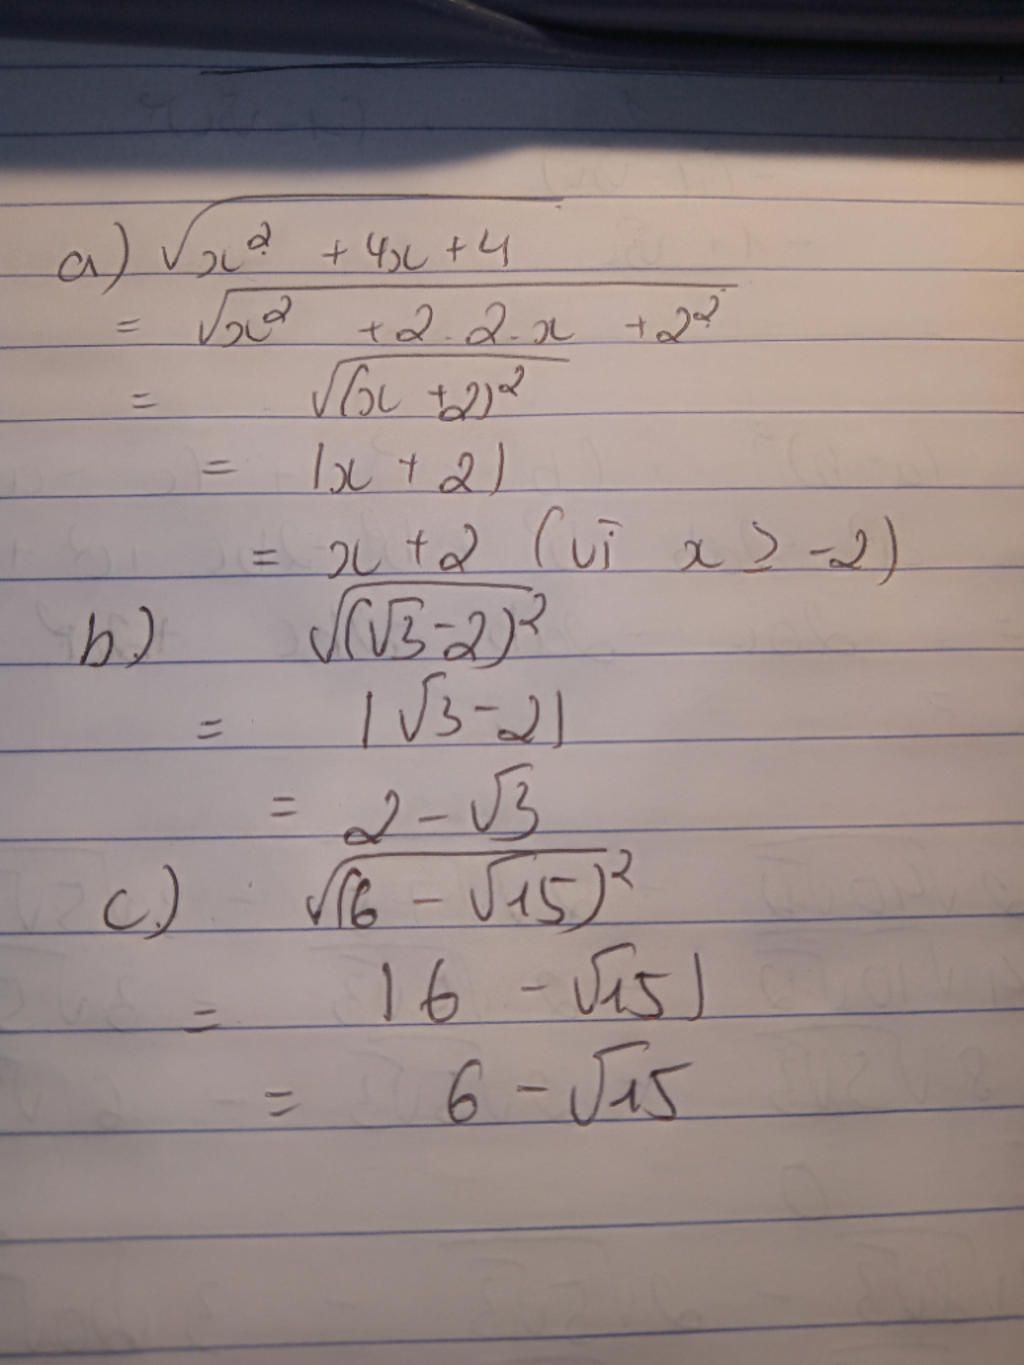 a) √(x² + 4x + 4)
= √(x² + 2.2.x + 2²)
= √((x + 2)²)
= |x + 2|
= x + 2 (vì x ≥ -2)
b.) √((√3 - 2)²)
= |√3 - 2|
= 2 - √3
c.) √((6 - √15)²)
= |6 - √15|
= 6 - √15